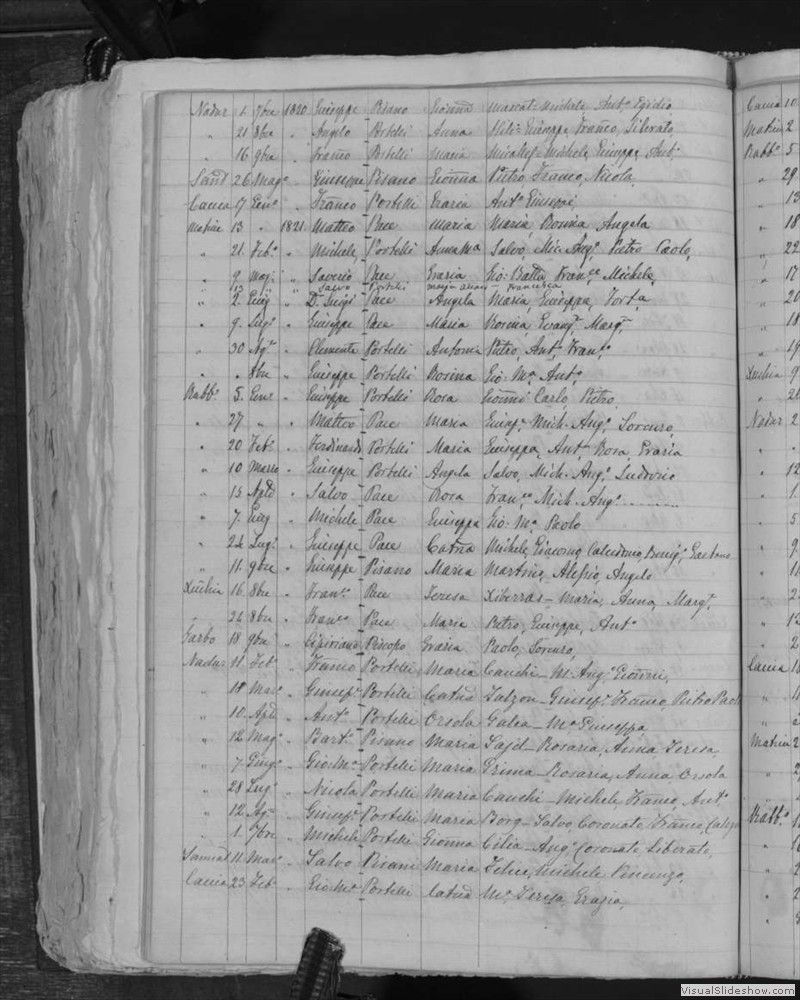 Nadur 1. 7bre 1820 Giuseppe Pisano Gionna Mascat- Michele Ant.o Egidio
" 21 8bre " Angelo Portelli Anna Giuseppe, Franco, Liberato
" 16 9bre " Franco Portelli Maria Micallef- Michele, Giuseppe, Ant.o
Sand 26 Mag.o " Giuseppe Pisano Gionna Pietro, Franco, Nicola
Caccia 17 Gen.o " Franco Portelli Grazia Ant.o Giuseppe,
Matrice 13 " 1821. Matteo Pace Maria Maria, Rosina, Angela
" 21. Feb.o " Michele Portelli Anna Ma Salvo, Mic. Ang.o Pietro Paolo,
" 9 Mag. " Saverio Pace Grazia Gio: Batta, Fran.co Michele,
" 13 " Salvo Portelli Francesca
" 2. Giug " Dr. Luigi Pace Angela Maria, Giuseppa,
" 9. Lug.o " Giuseppe Pace Maria Rosina, Evang.a Marg.a
" 30 Ag.o " Clemente Portelli Antonia Pietro, Ant.o Fran.o
" " 8bre " Giuseppe Portelli Rosina Gio: Ma. Ant.o
Rabb.o 5. Gen.o " Giuseppe Portelli Rosa Gionni Carlo Pietro
" 27 " " Matteo Pace Maria Giusep.e Mich. Ang.o Lorenzo,
" 20 Feb.o " Ferdinando Portelli Maria Giuseppa, Ant.a Rosa, Grazia
" 10 Marzo " Giuseppe Portelli Angela Salvo, Mich. Ang.o Ludovic
" 15 Aple " Salvo Pace Rosa Fran.co Mich. Ang.o
" 7. Giug " Michele Pace Giuseppa Gio: Ma. Paolo
" 24 Lug.o " Giuseppe Pace Catna Michele, Giacomo, Calcidonio, Benig.o Gaetano
" 11. 9bre " Giuseppe Pisano Maria Martino, Alessio, Angelo
Xeuchia 16 8bre " Fran.co Pace Teresa Xiberras- Maria, Anna, Marg.a
" 24 8bre " Fran.co Pace Maria Pietro, Giuseppe, Ant.o
Garbo 18 9bre " Cipriano Piscopo Grazia Paolo, Lorenzo,
Nadur 11. Feb.o " Franco Portelli Maria Cauchi- M. Ang.o Gionni,
" 18 Mar.o " Giusep.e Portelli Catna Falzon- Giusep.e Franco, Pietro Paol
" 10 Aple " Ant.o Portelli Orsola Galea- Ma. Giuseppa
" 12 Mag.o " Bart.o Pisano Maria Said- Rosaria, Anna Teresa
" 7 Giug.o " Gio:Ma. Portelli Maria Prima- Rosaria, Anna Orsola
" 28 Lug.o " Nicola Portelli Maria Cauchi- Michele Franco, Ant.o
" 12 Ag.o " Giusep.e Portelli Maria Borg- Salvo, Coronato, Franco,
" 1. 7bre " Michele Portelli Gionna Cilia- Ang.o Coronato, Liberato,
Sannat 11 Mar.o " Salvo Pisani Maria Felice, Michele Vincenzo,
Caccia 23 Feb.o " Gio:Ma. Portelli Catna Ma. Teresa Grazia,
Caccia 10
Matrice 2
Rabb.o 5
" 29
" 13
" 18
" 22
" 17
" 20
" 18
" 19
Xeuchia 9
Nadur 2
" 12
" 1.
" 5
" 9
Caccia 1
Matrice 2
Rabb.o
VisualSlideshow.com